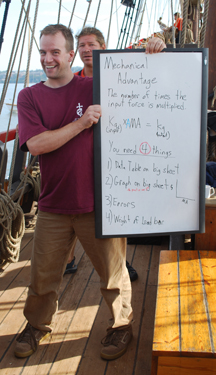 Mechanical
Advantage
The number of times the
input force is multiplied.
Kg x MA = kg
(input) (output)
You need 4 things
1) Data Table on big sheet
2) Graph on big sheet
3) Errors
4) Weight of